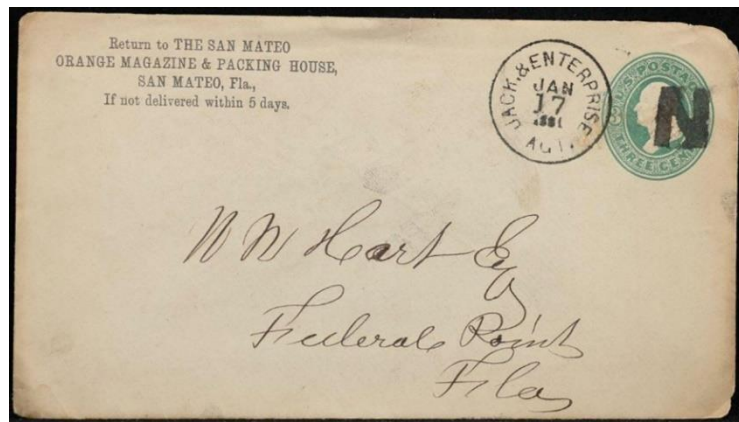 Return to THE SAN MATEO
ORANGE MAGAZINE & PACKING HOUSE,
SAN MATEO, Fla.,
If not delivered within 5 days.
JACK. & ENTERPRISE
JAN
17
1881
AGT.
U.S. POSTAGE
THREE CENTS
N
W W Hart Esq
Federal Point
Fla